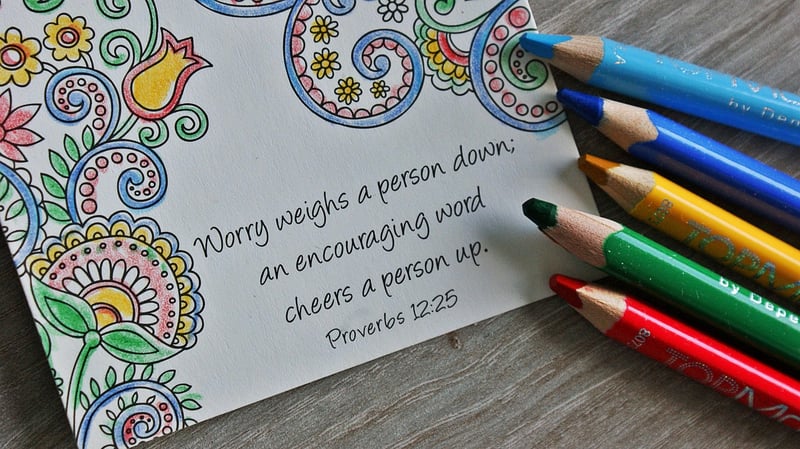 Worry weighs a person down;
an encouraging word
cheers a person up.
Proverbs 12:25
by Depe
TOPMO
by Depe
TOPMO